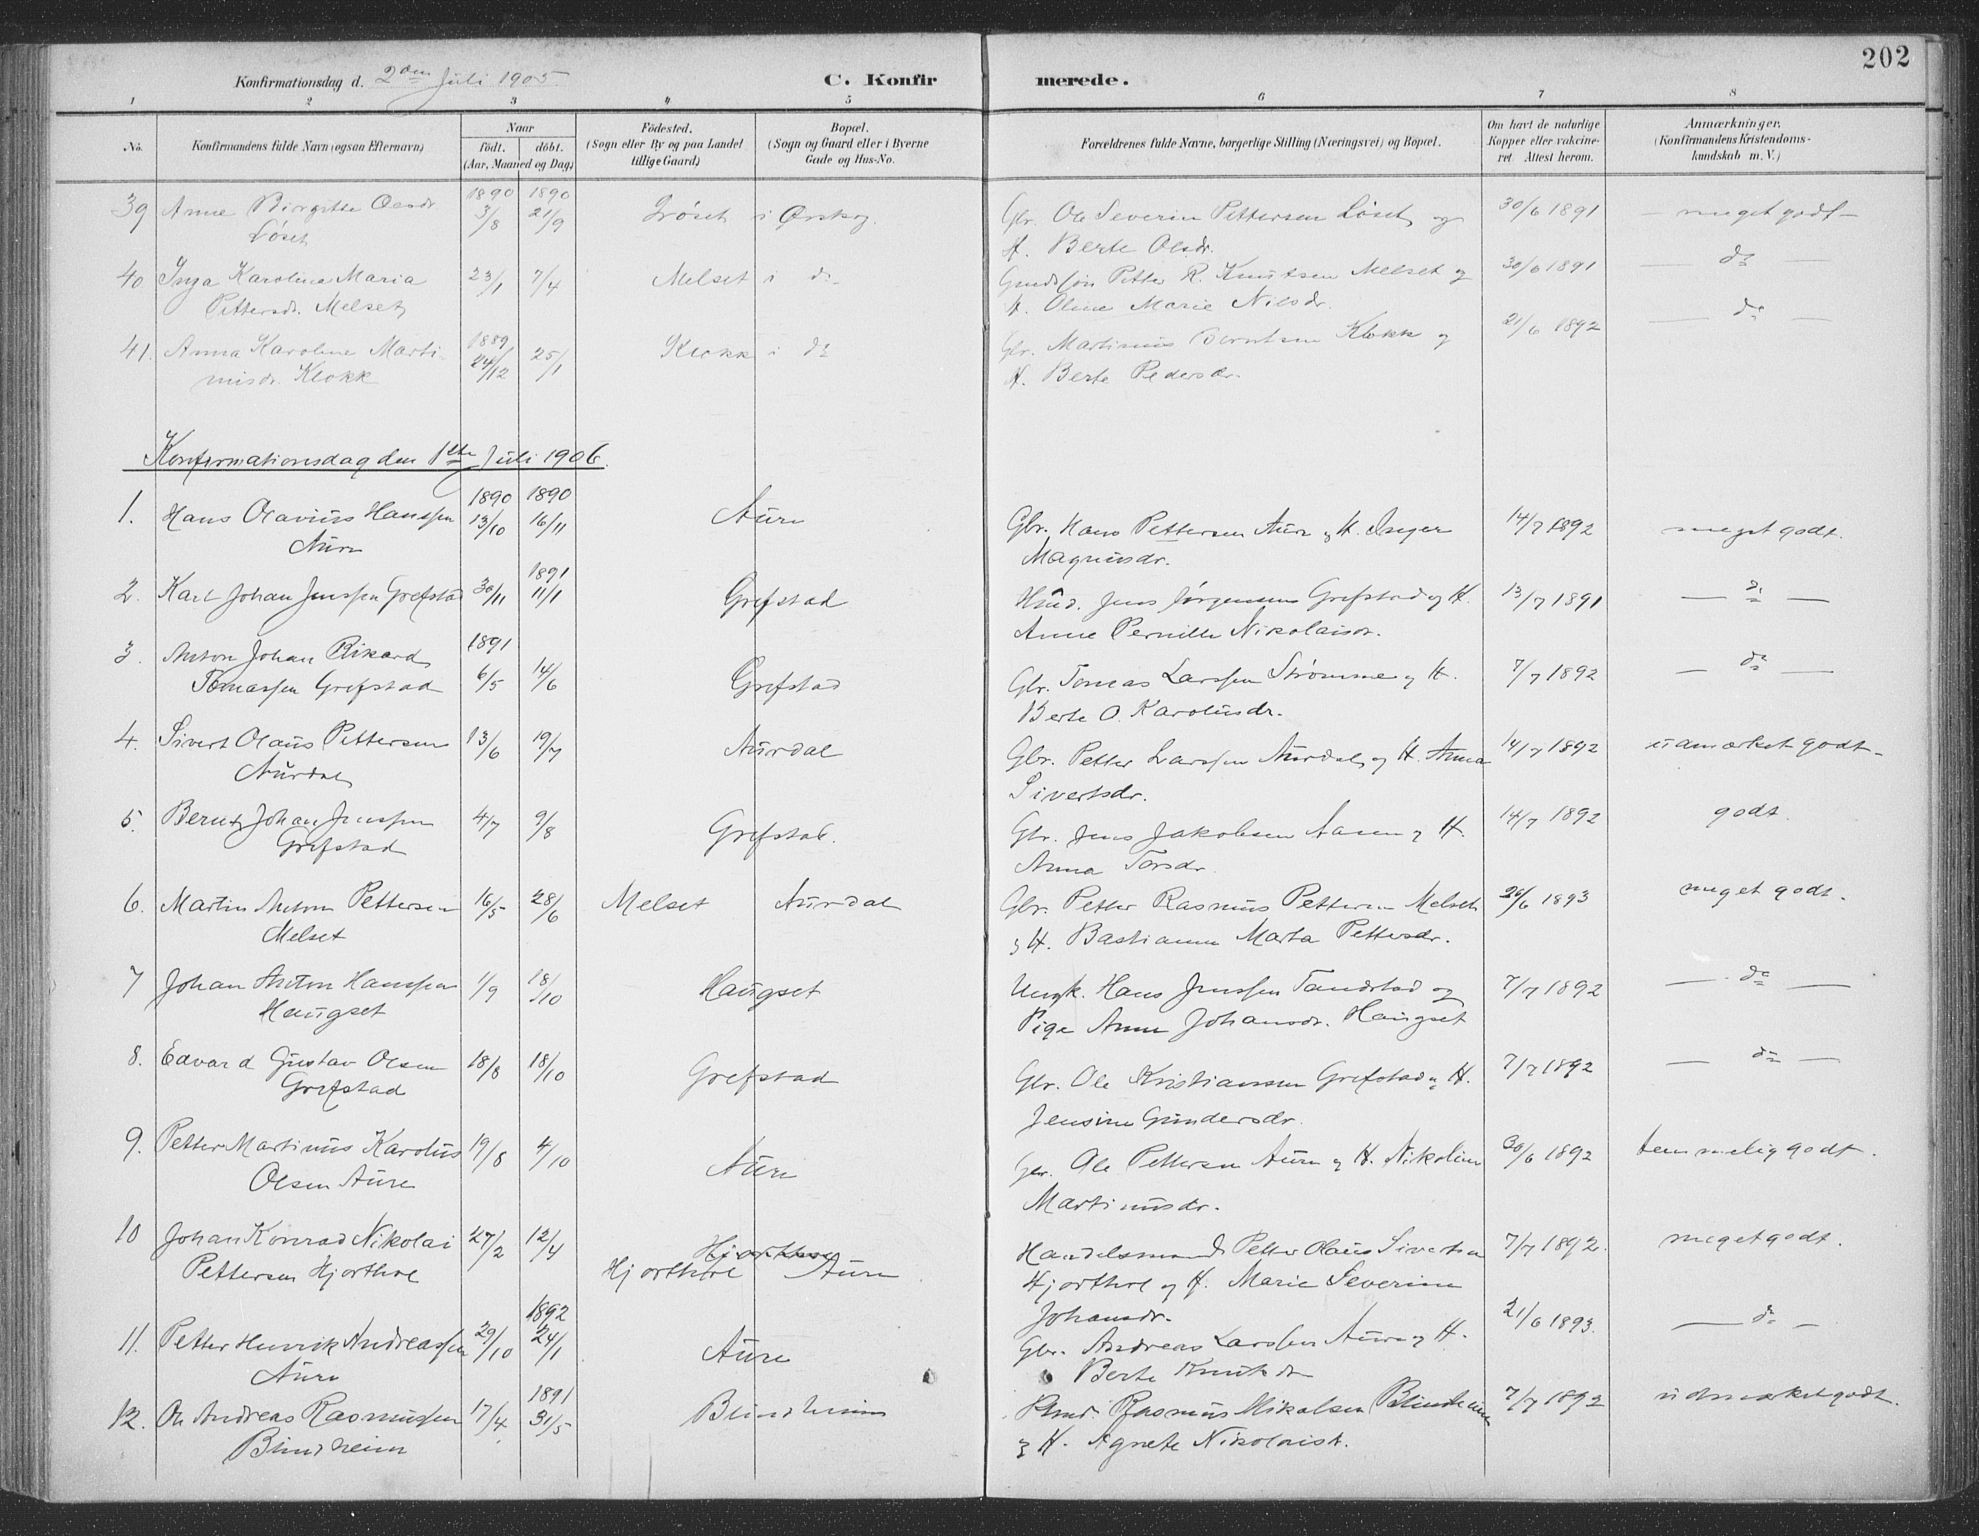 202
Konfirmationsdag d. 2den Juli 1905
C. Konfirmerede.
1 2 3 4 5 6 7 8
No.
Konfirmandens fulde Navn (ogsaa Efternavn)
Naar
födt. döbt.
(Aar, Maaned og Dag)
Födested.
(Sogn eller By og paa Landet
tillige Gaard)
Bopæl.
(Sogn og Gaard eller i Byerne
Gade og Hus-No.
Forældrenes fulde Navne, borgerlige Stilling (Næringsvei) og Bopæl.
Om havt de naturlige
Kopper eller vakcine-
ret. Attest herom.
Anmærkninger.
(Konfirmandens Kristendoms-
kundskab m. V.)
39 Anne Birgitte Olsdr. 1890 3/8 1890 21/9 i Ørskog. Gbr. Ole Severin Pettersen Løset og 30/6 1891 - meget godt -
Løset H. Berte Olsdr.
40 Inga Karoline Maria 23/1 7/4 Melset i do Petter R. Knutsen Melset og 30/6 1891 — do —
Pettersdr. Melset H. Oline Marie Nilsdr.
41. Anna Karoline Marti- 1889 24/12 25/1 Klokk i do Gbr. Martinus Berntsen Klokk og 21/6 1892 — do —
nusdr. Klokk H. Berte Pedersdr.
Konfirmationsdag den 1ste Juli 1906.
1. Hans Olavius Hanssen 1890 13/10 1890 16/11 Aure Gbr. Hans Pettersen Aure og H. Inger 14/7 1892 meget godt.
Aure Magnusdr.
2. Karl Johan Jenssen Grefstad 30/11 1891 11/1 Grefstad Hmd. Jens Jørgensen Grefstad og H. 13/7 1891 — do —
Anne Pernille Nikolaisdr.
3. Anton Johan Rikard 1891 6/5 14/6 Grefstad Gbr. Tomas Larssen Strømme og H. 7/7 1892 — do —
Tomassen Grefstad Berte O. Karolusdr.
4. Sivert Olaus Pettersen 13/6 19/7 Aurdal Gbr. Petter Larssen Aurdal og H. Anna 14/7 1892 udmærket godt -
Aurdal Sivertsdr.
5. Bernt Johan Jenssen 4/7 9/8 Grefstad. Gbr. Jens Jakobsen Aasen og H. 14/7 1892 godt.
Grefstad Anna Torsdr.
6. Martin Anton Pettersen 16/5 28/6 Melset Aurdal Gbr. Petter Rasmus Pettersen Melset 1893 meget godt.
Melset og H. Bastianne Marta Pettersdr.
7 Johan Anton Hanssen 1/9 18/10 Haugset Ungk. Hans Jenssen Tandstad og 7/7 1892 — do —
Haugset Pige Anne Johansdr. Haugset
8. Edvard Gustav Olsen 18/8 18/10 Grefstad Gbr. Ole Kristianssen Grefstad og H. 7/7 1892 — do —
Grefstad Jensine Gundersdr.
9. Petter Martinus Karolus 19/8 4/10 Aure Gbr. Ole Pettersen Aure og H. Nikoline 30/6 1892 temmelig godt.
Olsen Aure Martinusdr.
10 Johan Konrad Nikolai 27/2 12/4 Hjorthol Aure Handelsmand Petter Olaus Sivertsen 7/7 1892. meget godt.
Pettersen Hjorthol Hjorthol og H. Marie Severine
Johansdr.
11. Petter Henrik Andreassen 29/10 1892 24/1 Aure Gbr. Andreas Larssen Aure og H. 21/6 1893. — do —
Aure Berte Knutsdr
12. Ole Andreas Rasmussen 17/4 1891 31/5 Blindheim Rasmus Mikalsen Blindheim 7/7 1892 udmærket godt.
Blindheim og H. Agnete Nikolaisd.